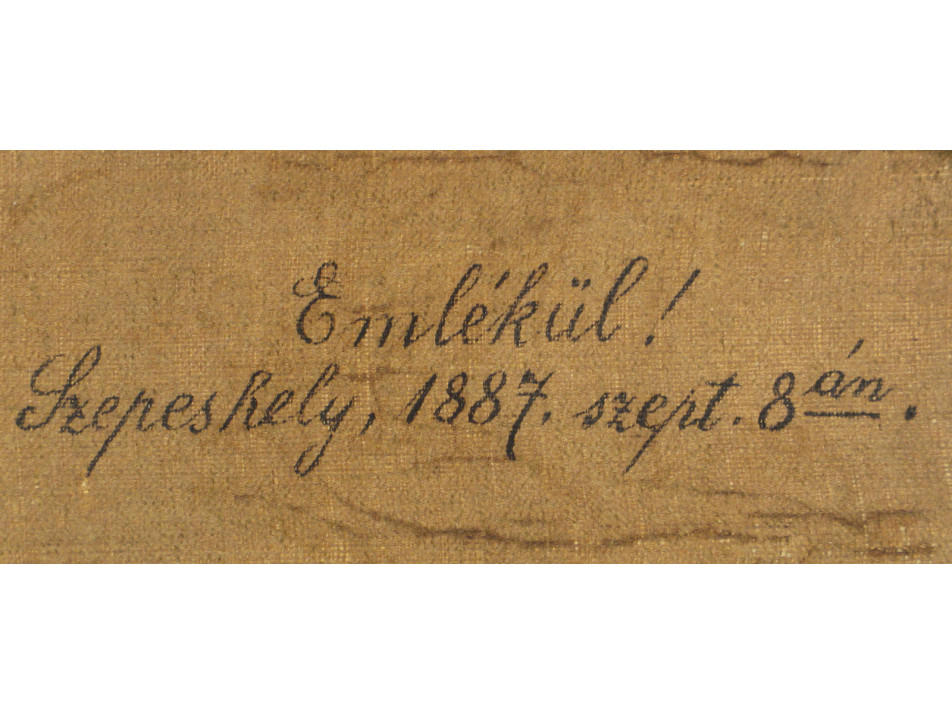 Emlékül!
Szepeshely, 1887. szept. 8án.